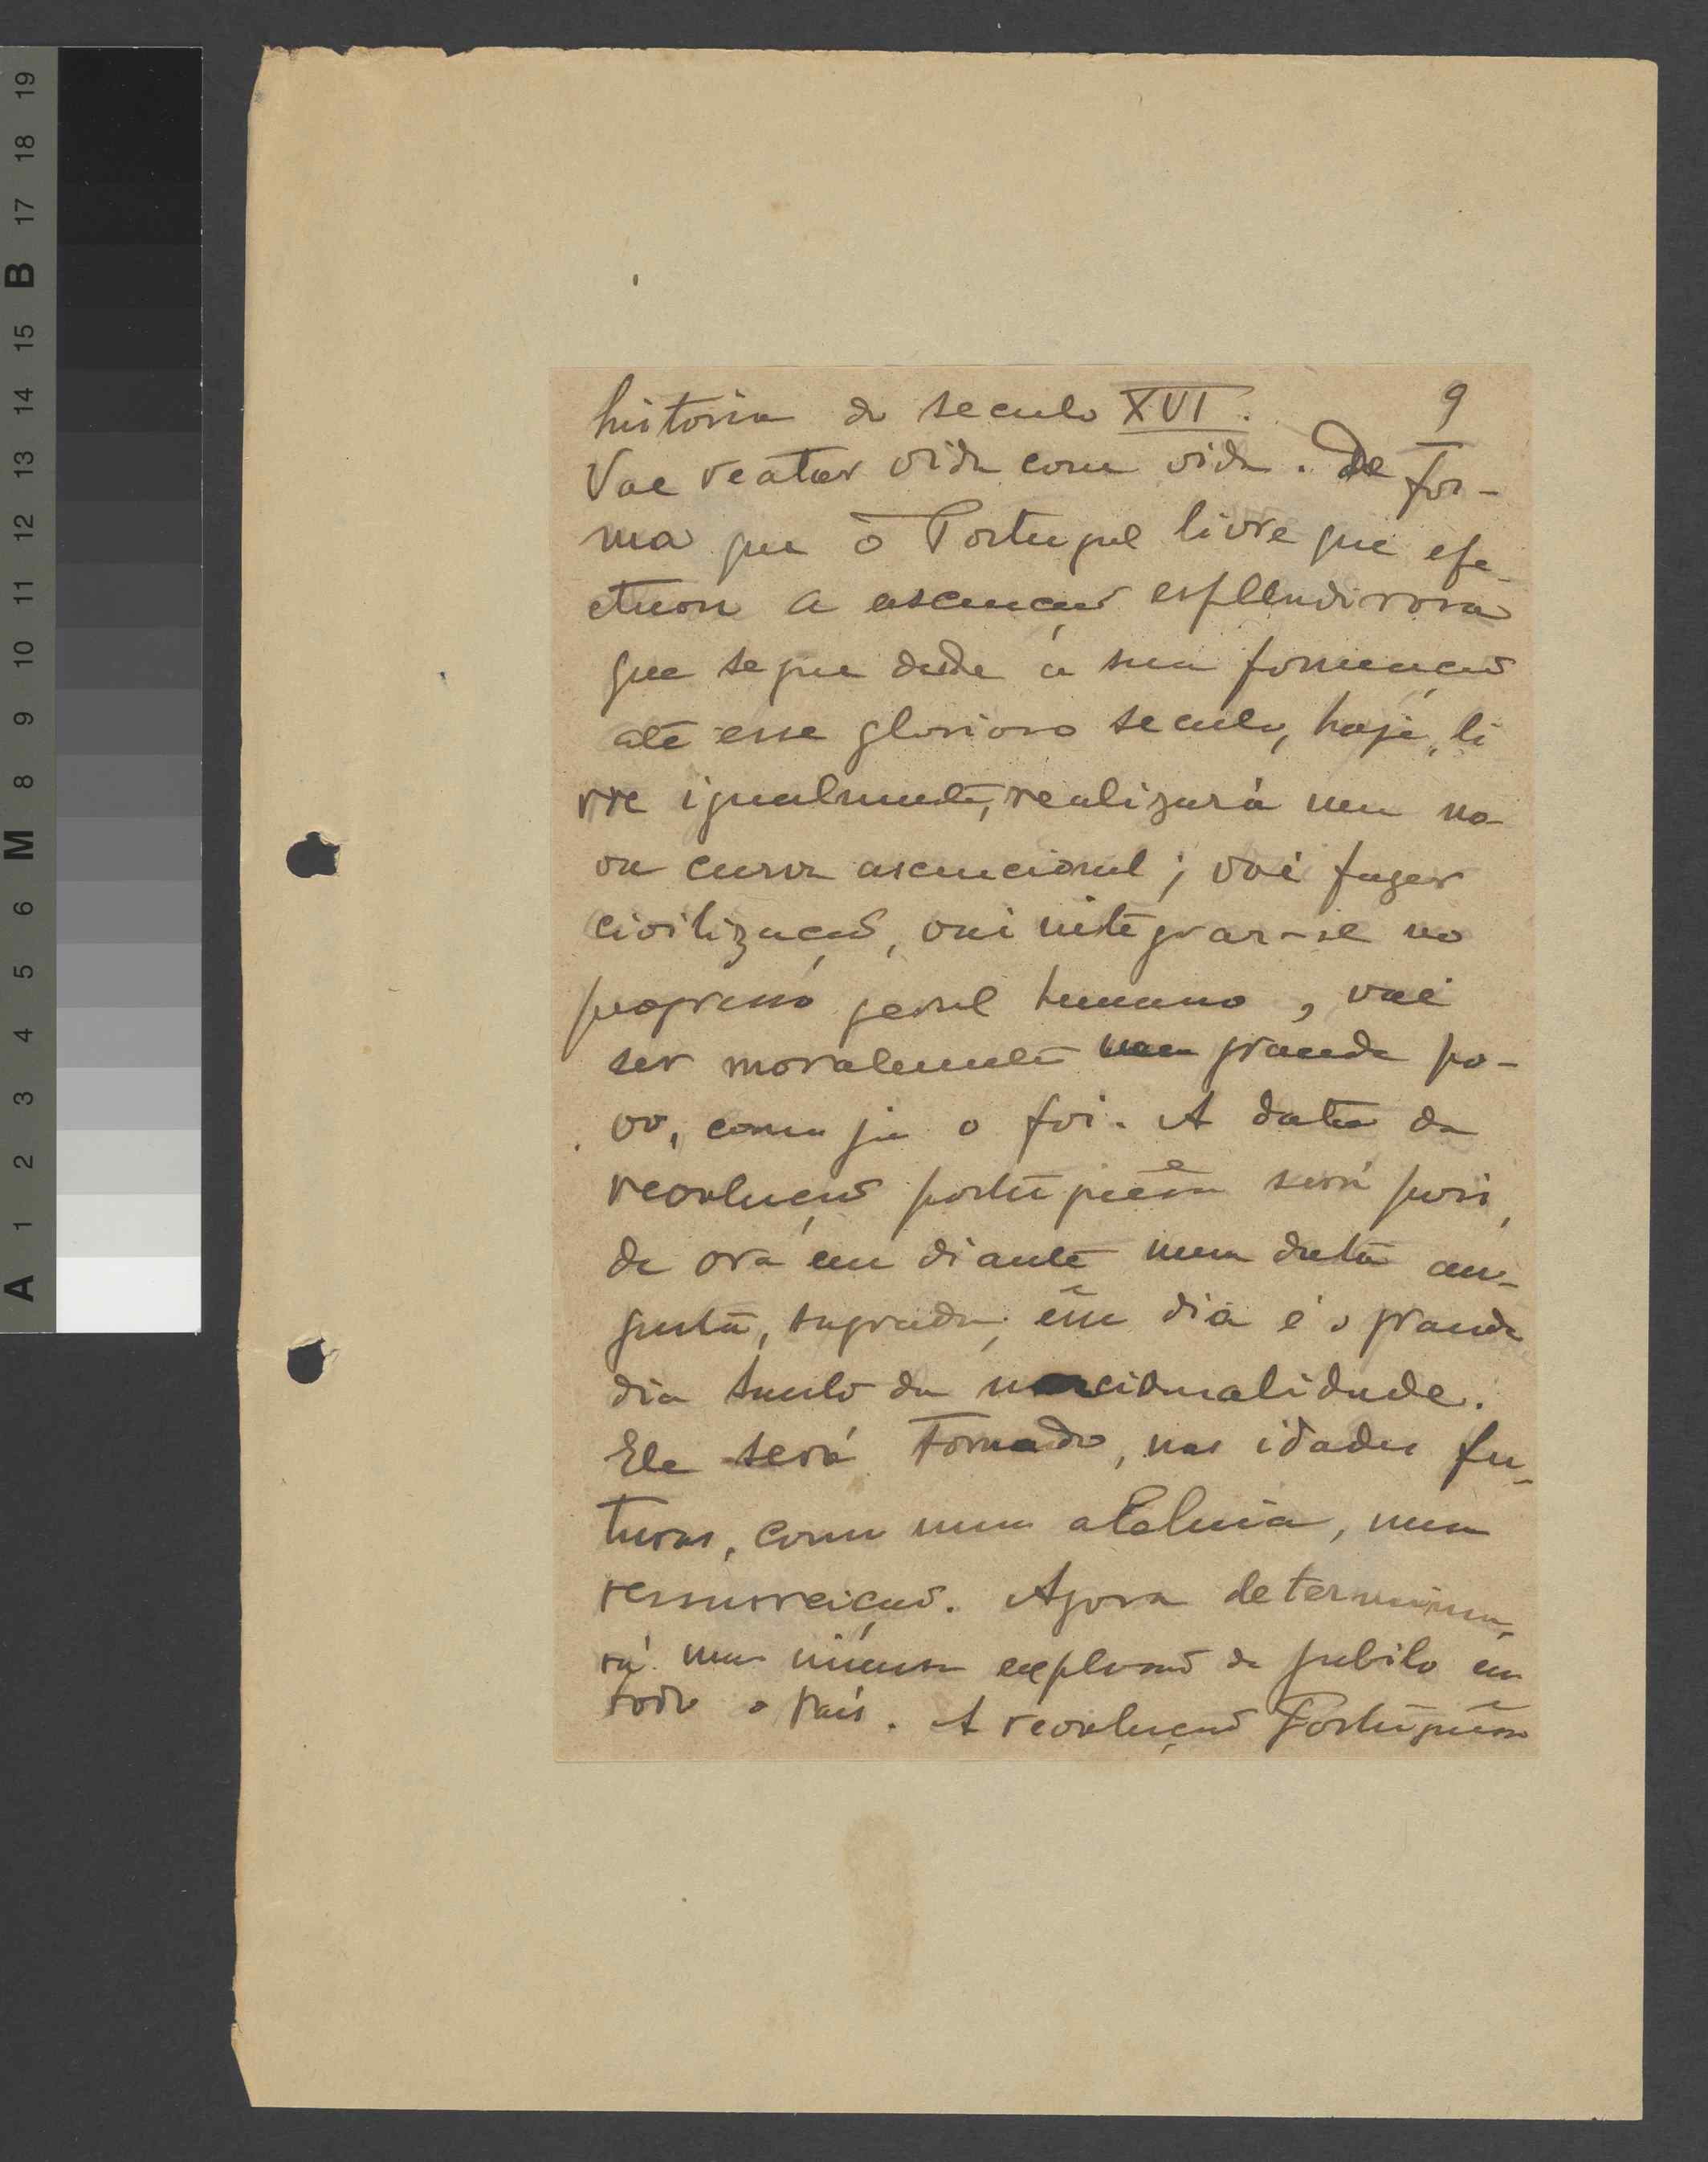 historia do seculo XVI.
9
Vae reatar vida com vida. De for-
ma que o Portugal livre que efe-
ctuou a ascenção esplendorosa
que segue desde a sua formação
até esse glorioso seculo, hoje, li
vre igualmente, realizará uma no-
va curva ascencional; vai fazer
civilização, vai integrar-se no
progresso geral humano, vai
ser moralmente um grande po-
vo, como ja o foi. A data da
revolução portuguêsa será pois,
de ora em diante uma data au-
gusta, sagrada; êsse dia é o grande
dia santo da nacionalidade.
Ele será tomado, nas idades fu-
turas, como uma aleluia, uma
ressurreição. Agora determina-
rá uma imensa explosão de jubilo em
todo o País. A revolução Portuguêsa